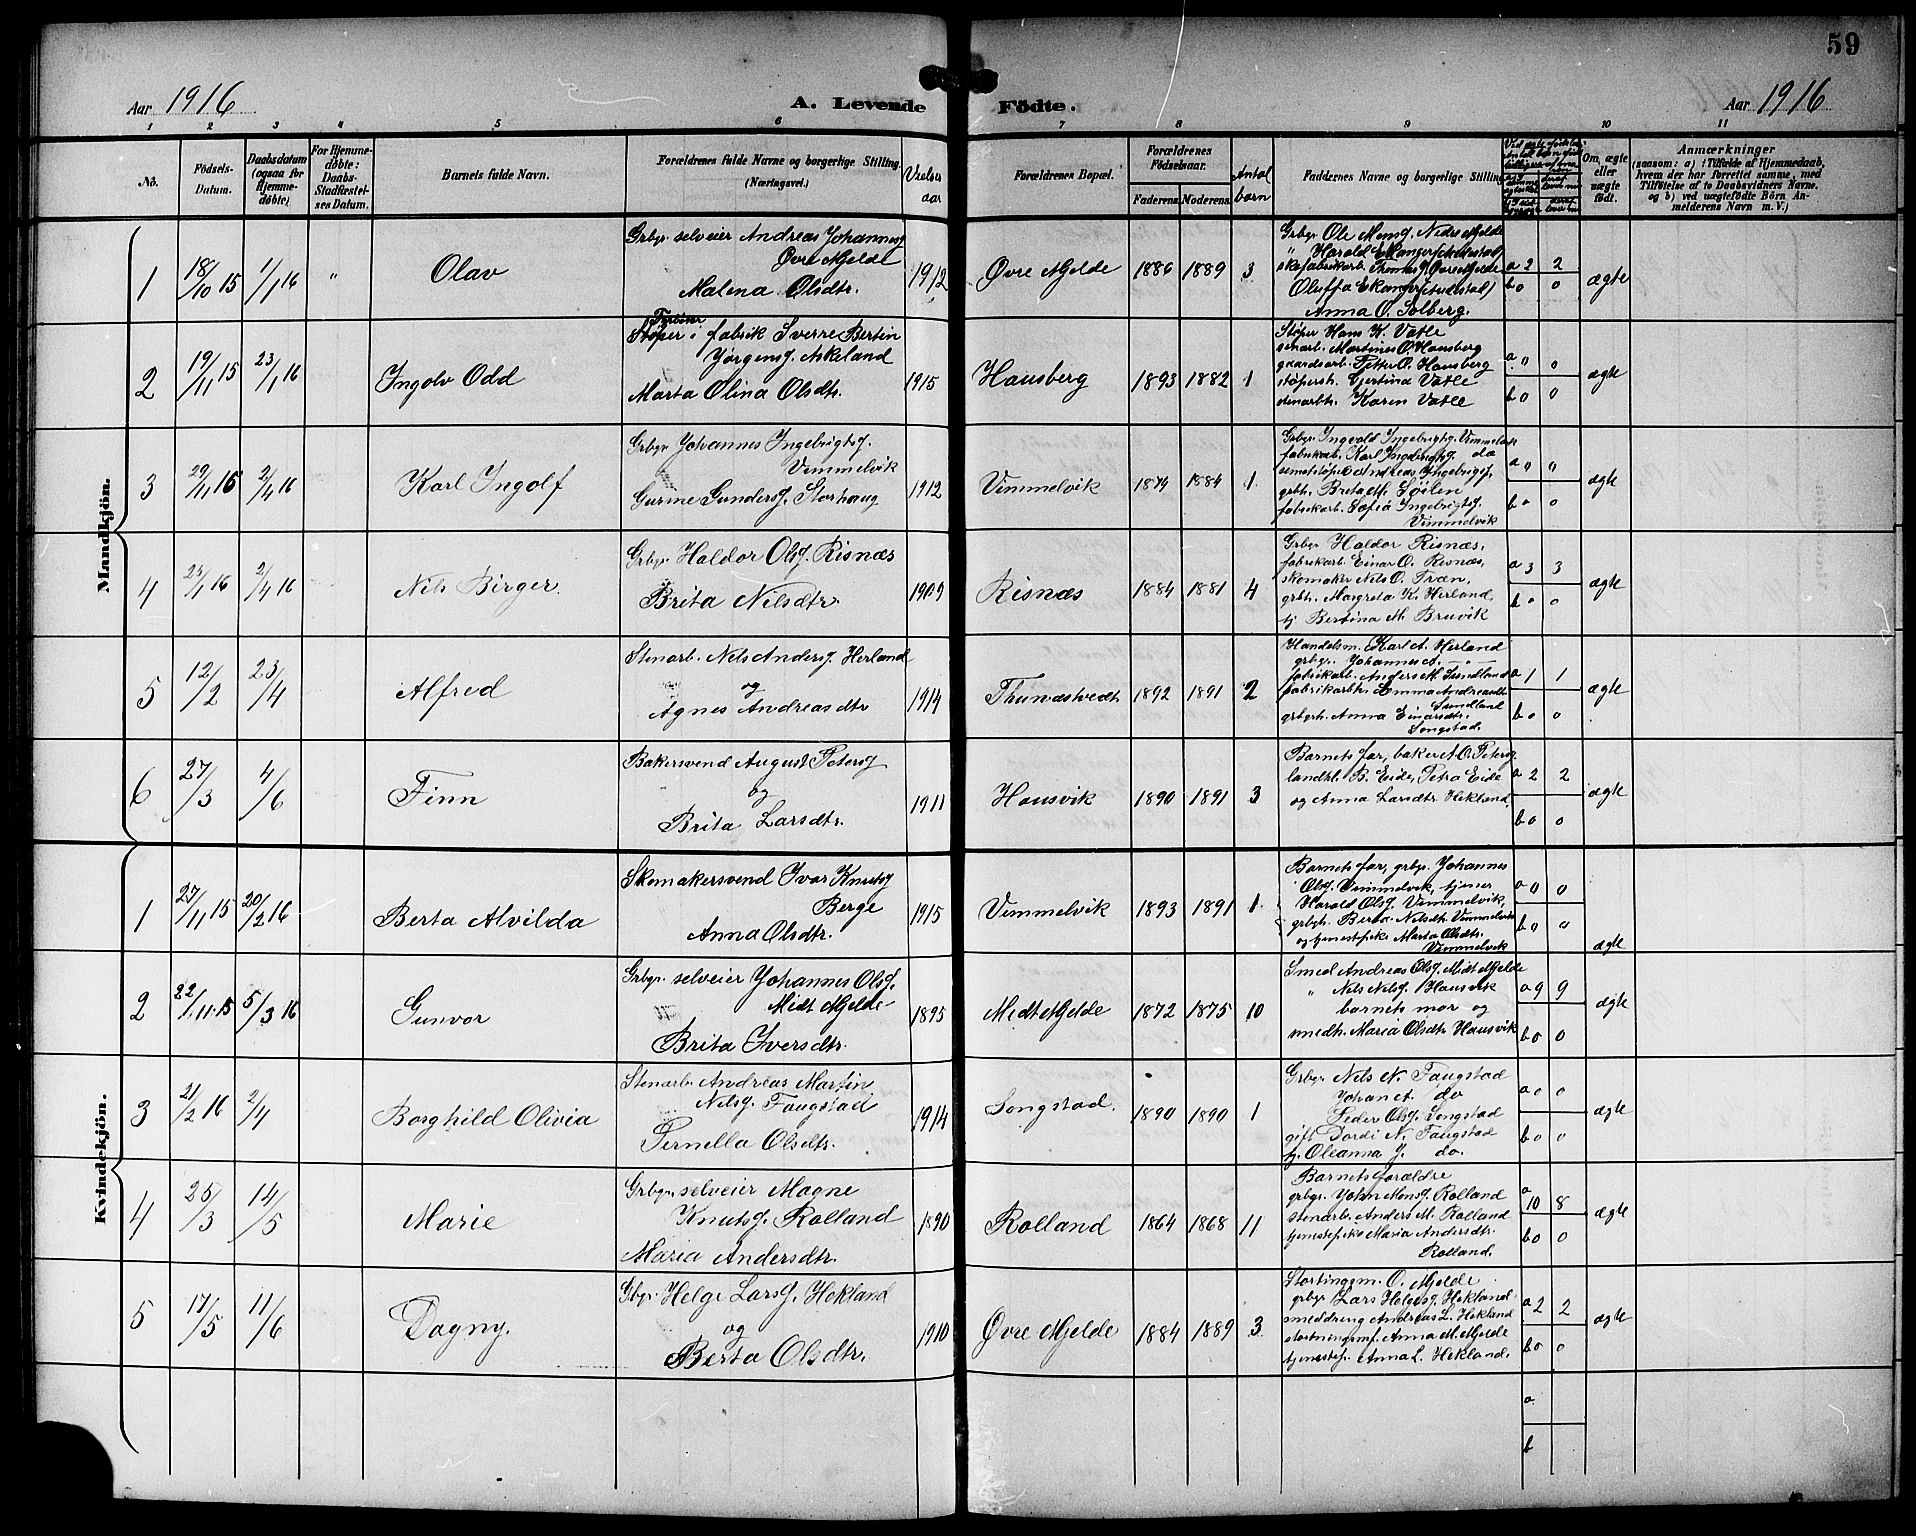 59
Aar 1916
A. Levende
Födte.
Aar 1916
1 2 3 4 5 6 7 8 9 10 11
No.
Födsels-
Datum.
Daabsdatum
(ogsaa for
Hjemme-
døbte)
For Hjemme-
døbte:
Daabs-
Stadfæstel-
ses Datum.
Barnets fulde Navn.
Forældrenes fulde Navne og borgerlige Stilling.
(Næringsvei.)
Vielses
aar
Forældrenes Bopæl.
Forældrenes
Födselsaar.
Faderens. Moderens.
Antal
barn
Faddernes Navne og borgerlige Stilling
Om, ægte
eller
uægte
födt.
Anmærkninger
(saasom: a) i Tilfælde af Hjemmedaab,
hvem der har forrettet samme, med
Tilföielse af to Daabsvidners Navne,
og b) ved uægtefödte Börn An-
melderens Navn m. V.)
Mandkjön.
1
18/10 15
1/1 16
"
Olav
Grbgr. selveier Andreas Johannesg
Øvre Mjelde
Malena Olsdtr.
1912
Øvre Mjelde
1886 1889 3
Grbgr. Ole Monsg. Nedre Mjelde
Anna O. Solberg.
a 2 2
b 0 0
ægte
2
19/11 15
23/1 16
Ingolv Odd
Støper i fabrik Sverre Bertin
Jørgensg. Askeland
Marta Olina Olsdtr.
1915
Hausberg
1893 1882 1
Støper Hans K. Vatle
stenarb. Martines O. Hausberg
gaardsarb. Petter O. Hausberg
støpersh. Gjertina Vatle
stenarbh. Karen Vatle
a 0 0
b 0 0
ægte
3
29/11 15
2/4 16
Karl Ingolf
Grbgr. Johannes Ingebrigtsg.
Vemmelvik
Gurine Gundersg. Storhaug
1912
Vemmelvik
1874 1884 1
Grbgr. Ingvald Ingebrigtsg. Vemmelvik
fabrikarb. Karl Ingebrigtsg. do
grbh. Brita M. Søilen
fabrikarb. Sofia Ingebrigtsg.
Vemmelvik
a 0 0
b 0 0
ægte
4
2/4 16
Nils Birger.
Grbgr. Haldor Olsg. Risnæs
Brita Nilsdtr.
1909
Risnæs
1884 1881 4
Grbgr. Haldor Risnæs,
fabrikarb. Einar O. Risnæs,
skomaker Nils O. Træn,
grbh. Margreta K. Herland,
tj Bertina M. Bruvik
a 3 3
b 0 0
ægte
5
12/2
23/4
Alfred
Stenarb. Nils Andersg. Herland
og
Agnes Andreasdtr
1914
Thunestvedt
1892 1891 2
Handelsm. Karl A. Herland
grbgr. Johannes A. — " —
fabrikarb. Anders M. Sundland
fabrikarbh. Emma Andreasdt.
Sundland
grbgrh. Anna Einarsdtr.
Songstad.
a 1 1
b 0 0
ægte
6
27/3
4/6
Finn
Bakersvend August Petersg
og
Brita Larsdtr.
1911
Hausvik
1890 1891 3
Barnets far, baker A. O. Petersg
landhl. B. Eide, Petra Eide
og Anna Larsdtr. Hekland.
a 2 2
b 0 0
ægte
Kvindekjön.
1
27/11 15
20/2 16
Berta Alvilda
Skomakersvend Ivar Knutsg
Berge
Anna Olsdtr.
1915
Vemmelvik
1893 1891 1
Barnets far, grbgr. Johannes
Olsg. Vemmelvik, tjener
Harald Olsg. Vemmelvik,
grbgh. Berta Nilsdtr. Vemmelvik
og tjenestepike Marta Olsdtr.
Vemmelvik
a 0 0
b 0 0
ægte
2
22/11 15
5/3 16
Gunvor
Grbgr. selveier Johannes Olsg.
Midt Mjelde
Brita Iversdtr.
1895
Midt Mjelde
1872 1875 10
Smed Andreas Olsg. Midt Mjelde
" Nils Nilsg. Hausvik
barnets mor og
smedh. Maria Olsdtr Hausvik
a 9 9
b 0 0
ægte
3
21/2 16
2/4
Borghild Olivia
Stenarb. Andreas Martin
Nilsg. Faugstad
Pernella Olsdtr.
1914
Songstad.
1890 1890 1
Grbgr. Nils N. Faugstad
Johan A. do
Peder Olsg. Songstad
gift Dordi N. Faugstad
tj. Oleanna J. do.
a 0 0
b 0 0
ægte
4
25/3
14/5
Marie
Grbgr. selveier Magne
Knutsg. Rolland
Maria Andersdtr.
1890
Rolland
1864 1868 11
Barnets forældre
grbgr. John Monsg. Rolland
stenarb. Anders M. Rolland
tjenestepike Maria Andersdtr.
Rolland.
a 10 8
b 0 0
ægte
5
17/5
11/6
Dagny.
Gbgr. Helge Larsg. Hekland
og
Berta Olsdtr.
1910
Øvre Mjelde
1884 1889 3
Stortingsm. O. Mjelde
grbgr. Lars Helgesg. Hekland
smeddreng Andreas L. Hekland
stortingsmf. Anna M. Mjelde
tjenestep. Anna L. Hekland.
a 2 2
b 0 0
ægte
a
b